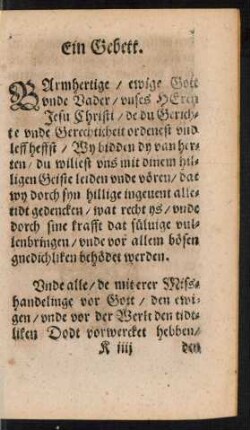 Ein Gebett.
BArmhertige / ewige Gott
vnde Vader / vnses HEren
Jesu Christi / de du Gerich-
te vnde Gerechticheit ordenest vnd
leff heffst / Wy bidden dy van her-
ten / du willest vns mit dinem hil-
ligen Geiste leiden vnde vören / dat
wy dorch syn hillige ingeuent alle-
tidt gedencken / wat recht ys / vnde
dorch sine krafft dat süluige vul-
lenbringen / vnde vor allem bösen
gnedichliken behödet werden.
Vnde alle / de mit erer Miss-
handelinge vor Gott / den ewi-
gen / vnde vor der Werlt den tidt-
liken Dodt vorwercket hebben /
K iiij
den